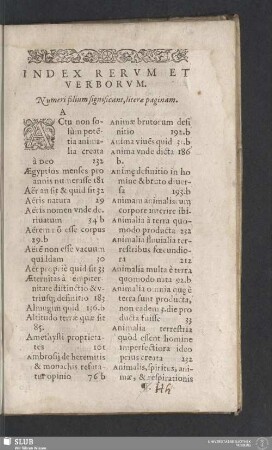 INDEX RERVM ET
VERBORVM.
Numeri folium significant, literæ paginam.
A
ACtu non so-
lùm potē-
tia anima-
lia creata
à Deo 132
Ægyptios menses pro
annis numerasse 181
Aër an sit & quid sit 32
Aëris natura 29
Aëris nomen vnde de-
riuatum 34 b
Aërem nō esse corpus
29.b
Aërē non esse vacuum
quiddam 30
Aër propriè quid sit 33
Æternitas à empiter-
nitate distinctio & v-
triusq; definitio 183
Altitudo terræ quæ sit
85.
Amethysti proprieta-
tes 101
Ambrosij de heremitis
& monachis
opinio 76 b
Animæ brutorum defi
nitio 192.b
Anima vnde dicta 186
b.
Animę definitio in ho
mine & bruto diuer-
sa 193.b
Animam animalis cum
corpore interire ibi-
Animalia à terra quo-
modo producta 232
Animalia fluuialia ter-
restribus fœcundio-
ra 212
Animalia multa è terra
quomodo nata 92.b
terra
sunt producta,
non eadem 5. die pro
ducta fuisse 33
Animalia terrestria
quòd essent homine
imperfectiora ideo
prius creata 232
Animalis, spiritus, ani-
mæ, & respirationis
Hh
SLUB